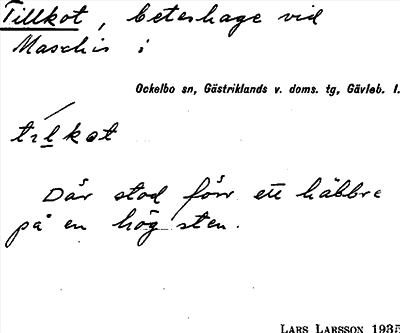 Tillkot, beteshage vid
Maschis i
Ockelbo sn, Gästriklands v. doms. tg, Gävleb. l.
Där stod förr ett häbbre
på en hög sten.
LARS LARSSON 1935